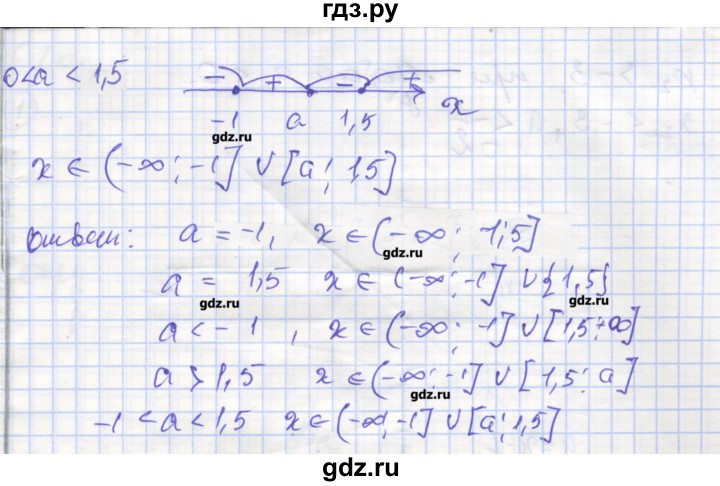 гдз.ру
0<a<1,5
− + − +
-1 a 1,5 x
gdz.ru
x ∈ (-∞; -1] ∪ [a; 1,5]
Ответ: a = -1, x ∈ (-∞; 1,5]
gdz.ru
a = 1,5 x ∈ (-∞; -1] ∪ {1,5}
gdz.ru gdz.ru
a < -1, x ∈ (-∞; -1] ∪ [1,5; +∞]
gdz.ru
a > 1,5 x ∈ (-∞; -1] ∪ [1,5; a]
gdz.ru
-1 < a < 1,5 x ∈ (-∞, -1] ∪ [a; 1,5]
gdz.ru